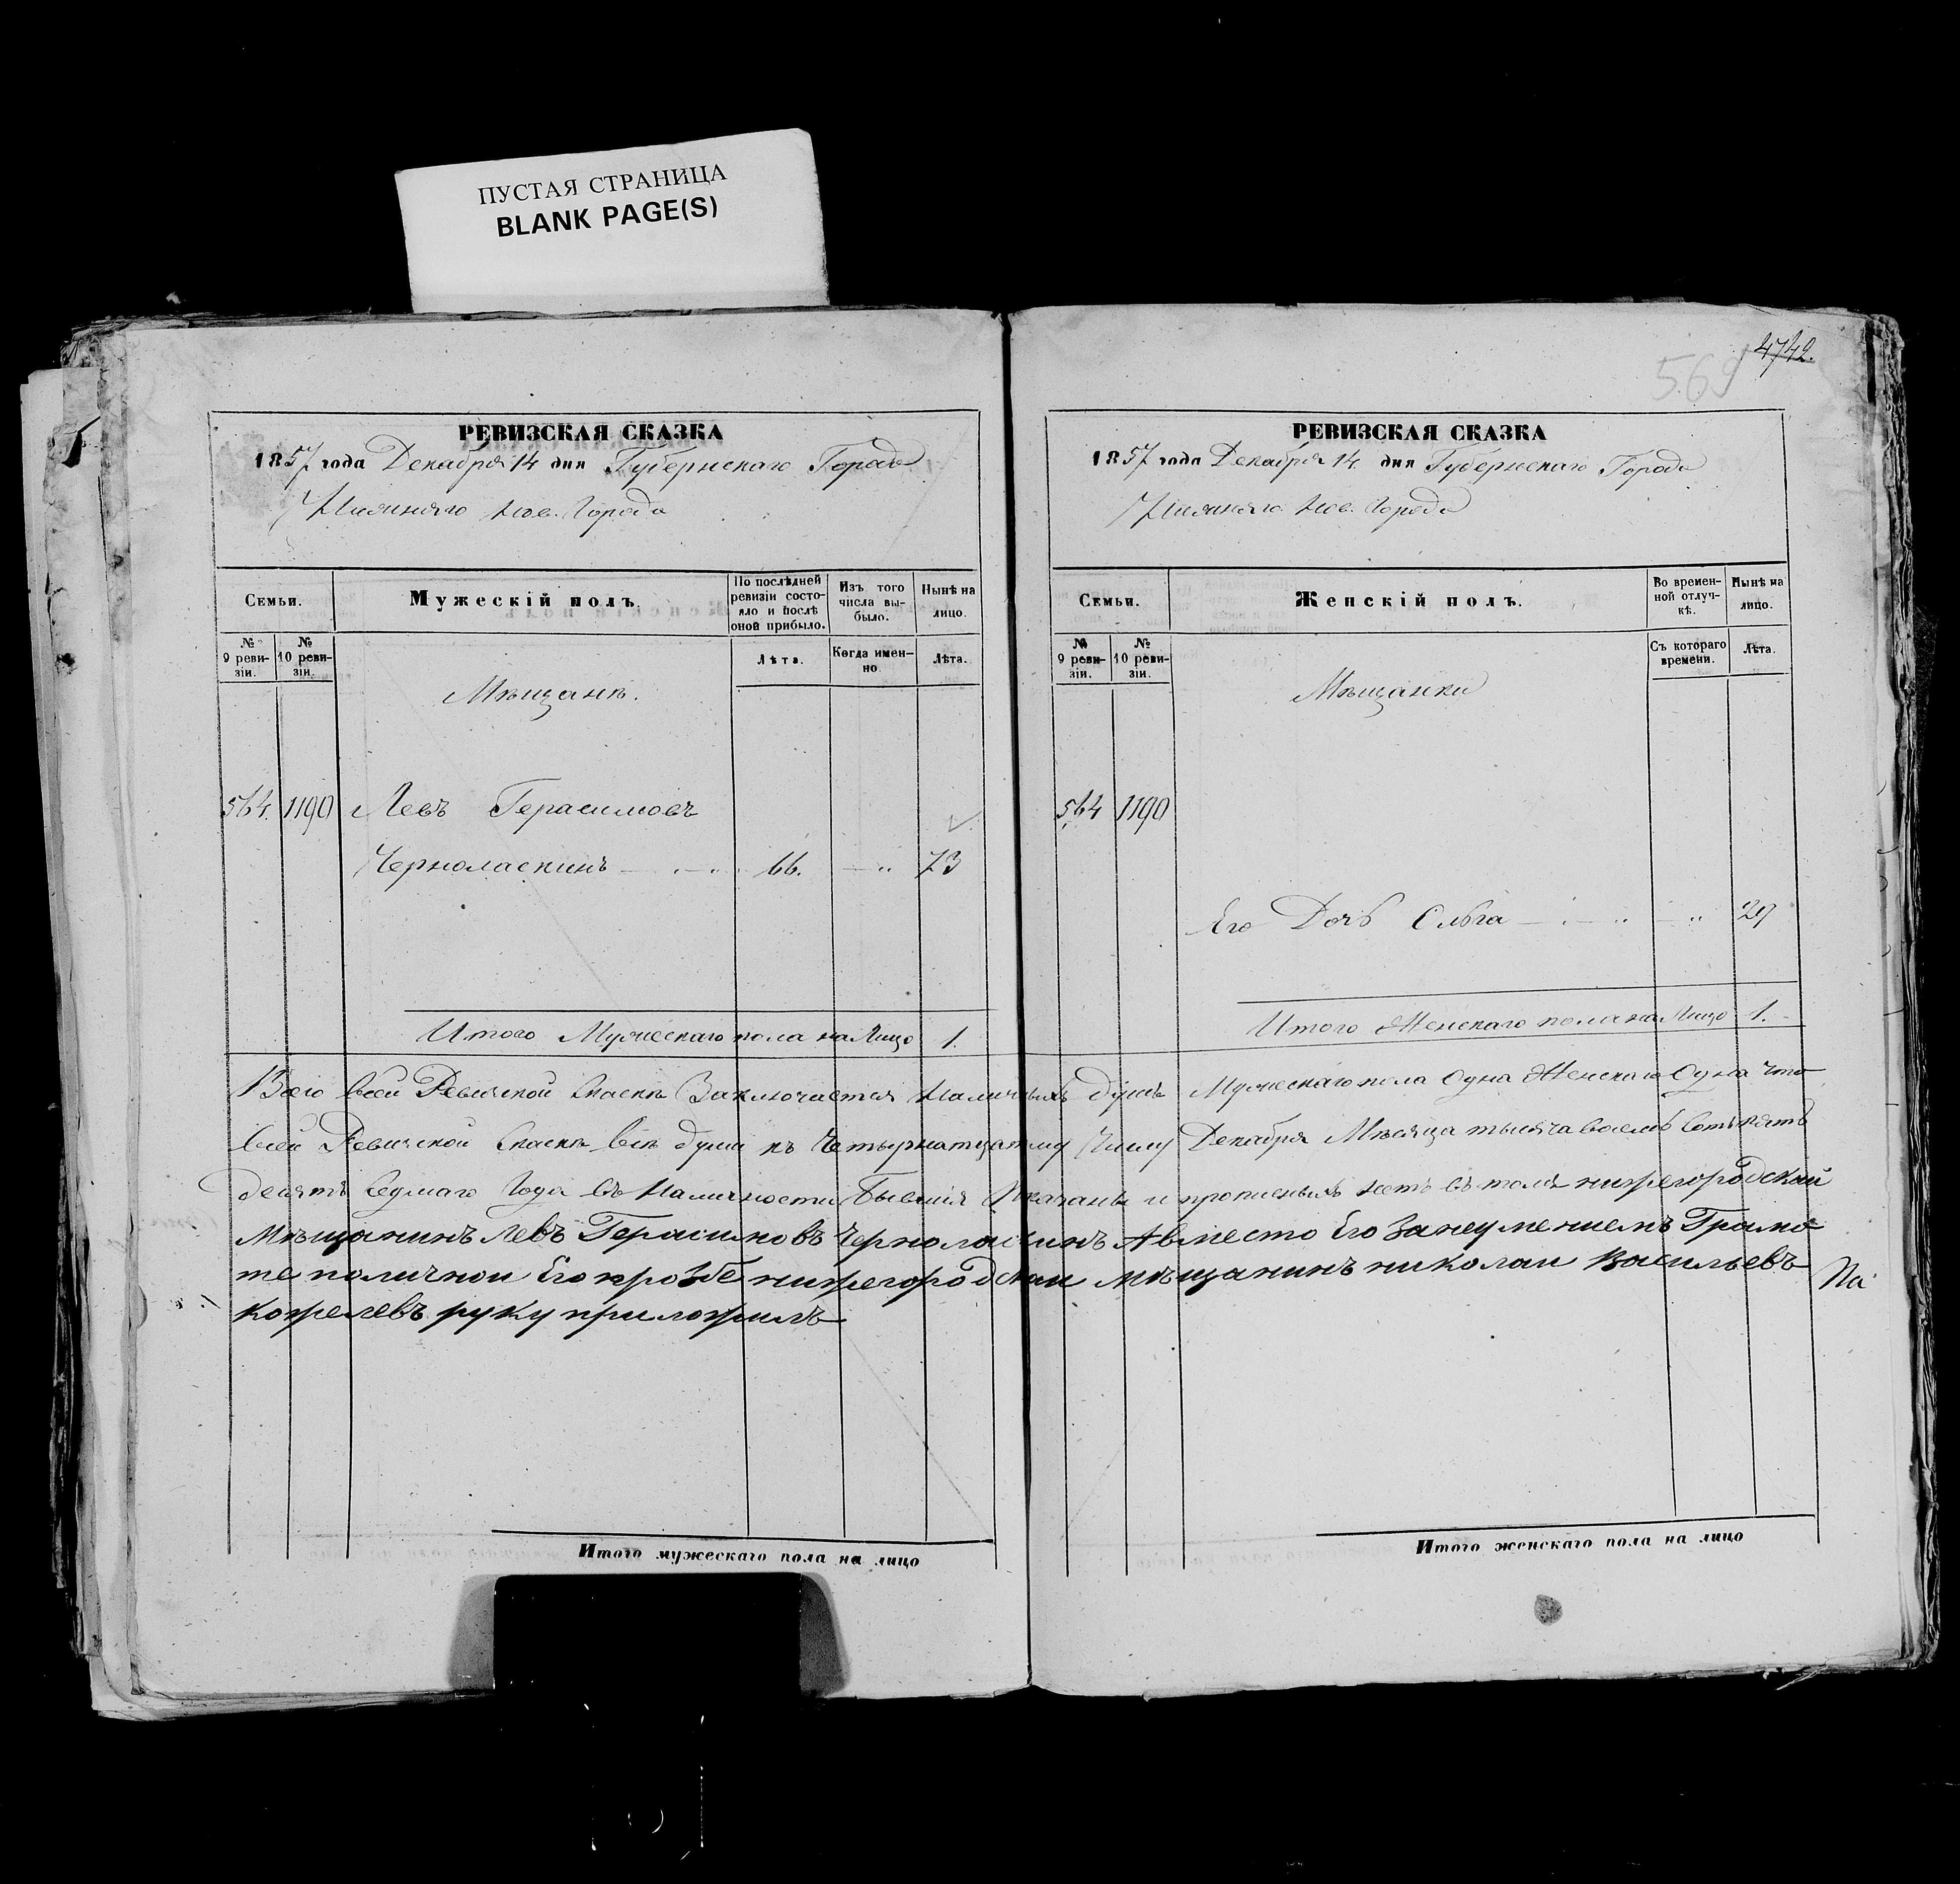 ПУСТАЯ СТРАНИЦА
BLANK PAGE(S)
4742.
569
РЕВИЗСКАЯ СКАЗКА
1857 года Декабря 14 дня Губернскаго Города
Нижняго Нов. Города
Семьи.
Мужескій полъ.
По послѣдней ревизіи состо-
яло и послѣ
оной прибыло.
Изъ того
числа вы-
было.
Нынѣ на
лицо.
№
9 реви-
зіи.
№
10 реви-
зіи.
Лѣта.
Когда имен-
но
Лѣта.
Мѣщане.
564. 1190 Левъ Герасимовъ
Черноласкинъ 66. 73
Итого Мужескаго пола на Лицо 1.
РЕВИЗСКАЯ СКАЗКА
1857 года Декабря 14 дня Губернскаго Города
Нижняго Нов. Города
Семьи.
Женскій полъ.
Во времен-
ной отлуч-
кѣ.
Нынѣ на
лицо.
№
9 реви-
зіи.
№
10 реви-
зіи.
Съ котораго
времени.
Лѣта.
Мѣщанки
564 1190
Его Дочь Ольга 29
Итого Женскаго пола на Лицо 1.
Всего всей Ревиской Скаске Заключается Наличныхъ душъ Мужескаго пола Одна Женскаго Одна что
всей Ревиской Скаске все души къ Четырнатцатому Числу Декабря Месяца тысяча восемь сотъ пять
десятъ седмаго Года въ Наличности Бывшія Показаны и прописныхъ нетъ въ томъ нижегородской
Мѣщанинъ Левъ Герасимовъ Черноласкинъ А вместо Его Занеумениемъ Грамо
те поличной Его прозбе нижегородской мѣщанинъ николай Васильевъ
кожелевъ руку приложилъ
Па
Итого мужескаго пола на лицо
Итого женскаго пола на лицо